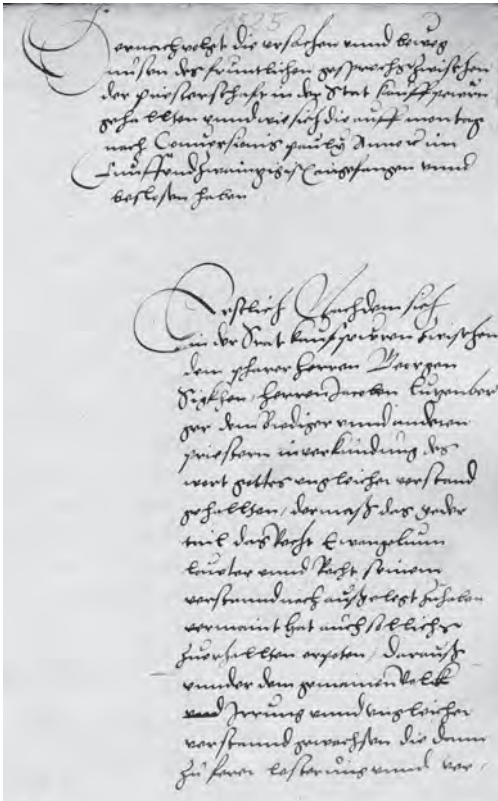 1525
Hernachvolgt die ursachen unnd beweg
nussen des fruntlichen gesprechs zwischen
der priesterschafft in der Stat kauffpewrn
gehallten unnd wie sich die auff montag
nach Conversionis pauly Anno im
funffundzwaintzigisten angefangen unnd
beslossen haben
Erstlich Nachdem sich
in der Stat kauffpewren zwischen
dem pharer herren Georgen
Sigkhen, herren Jacoben Lutzenber
ger dem Prediger unnd anderen
priestern in verkundung des
wort gottes ungleicher verstand
gehallten, dermaß das yeder
tail das Recht Ewangelium
lauter unnd Recht seinem
verstannd nach außgelegt zuhaben
vermaint hat auch sollichs
zuerhallten erpoten, darauß
unnder dem gemainen volck
Irrung unnd ungleicher
verstannd gewachsen die dann
zu feren lesterung unnd ver,